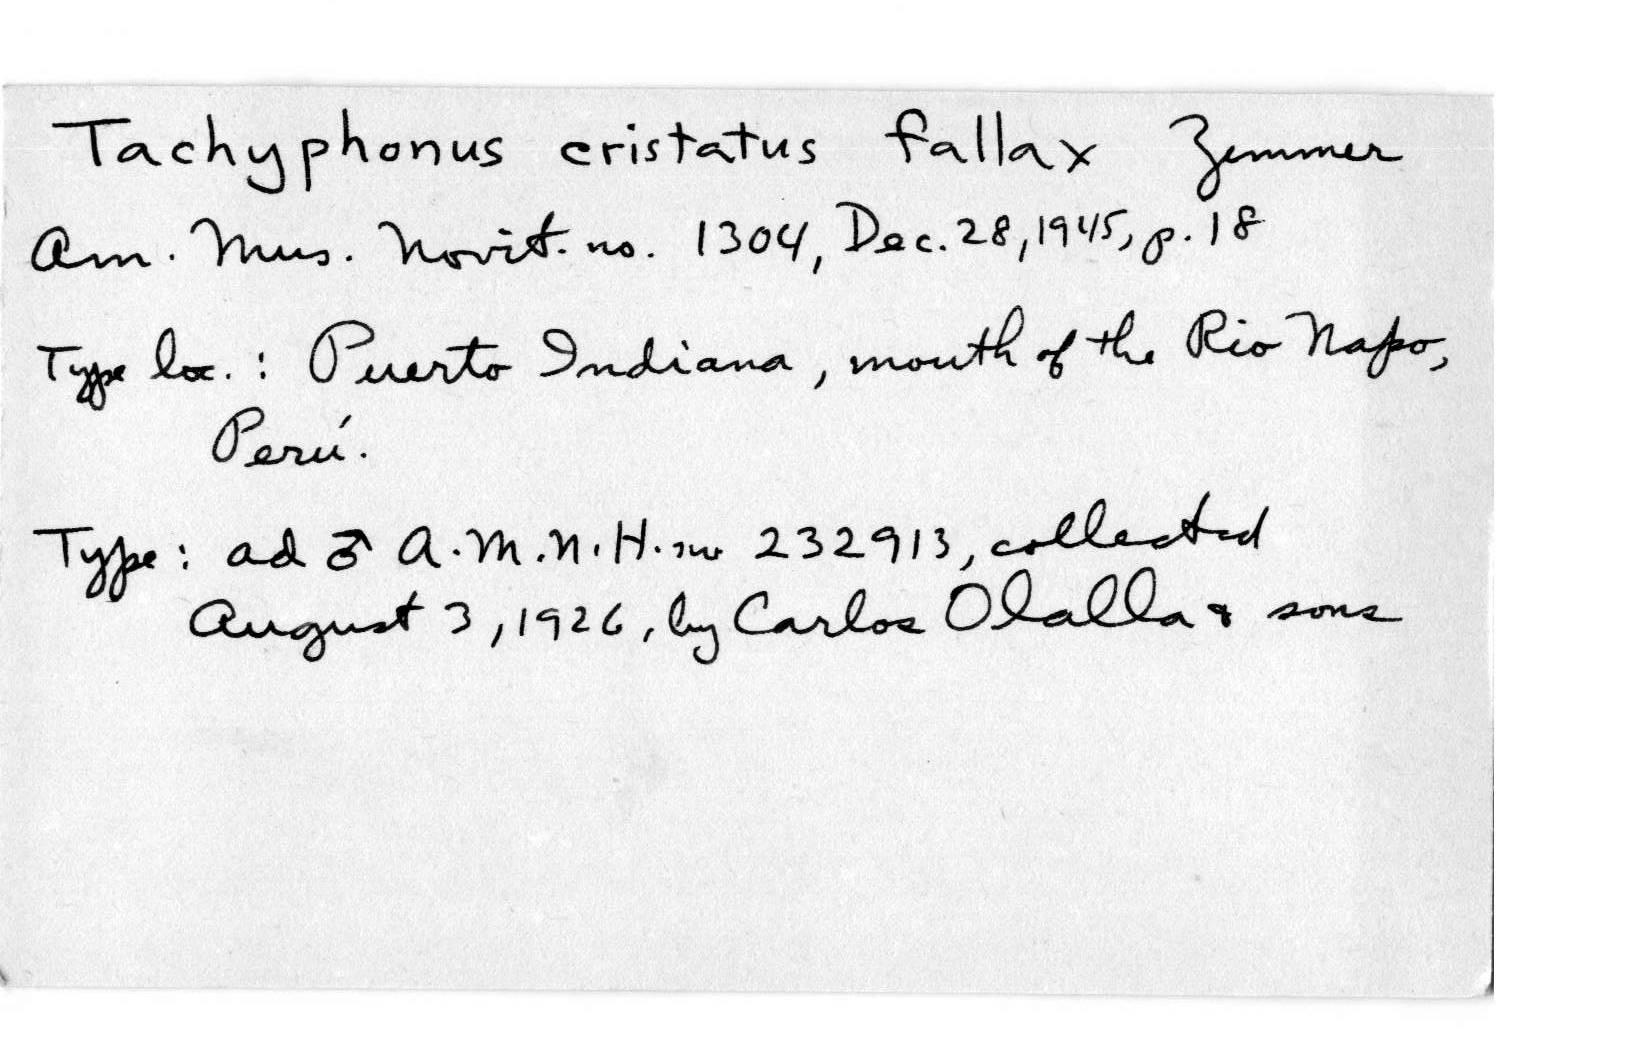 Tachyphonus cristatus fallax Zimmer
Am. Mus. Novit. no. 1304, Dec. 28, 1945, p. 18
Type loc. : Puerto Indiana, mouth of the Rio Napo,
Perú.
Type : ad ♂ A.M.N.H. no 232913, collected
August 3, 1926, by Carlos Olalla & sons